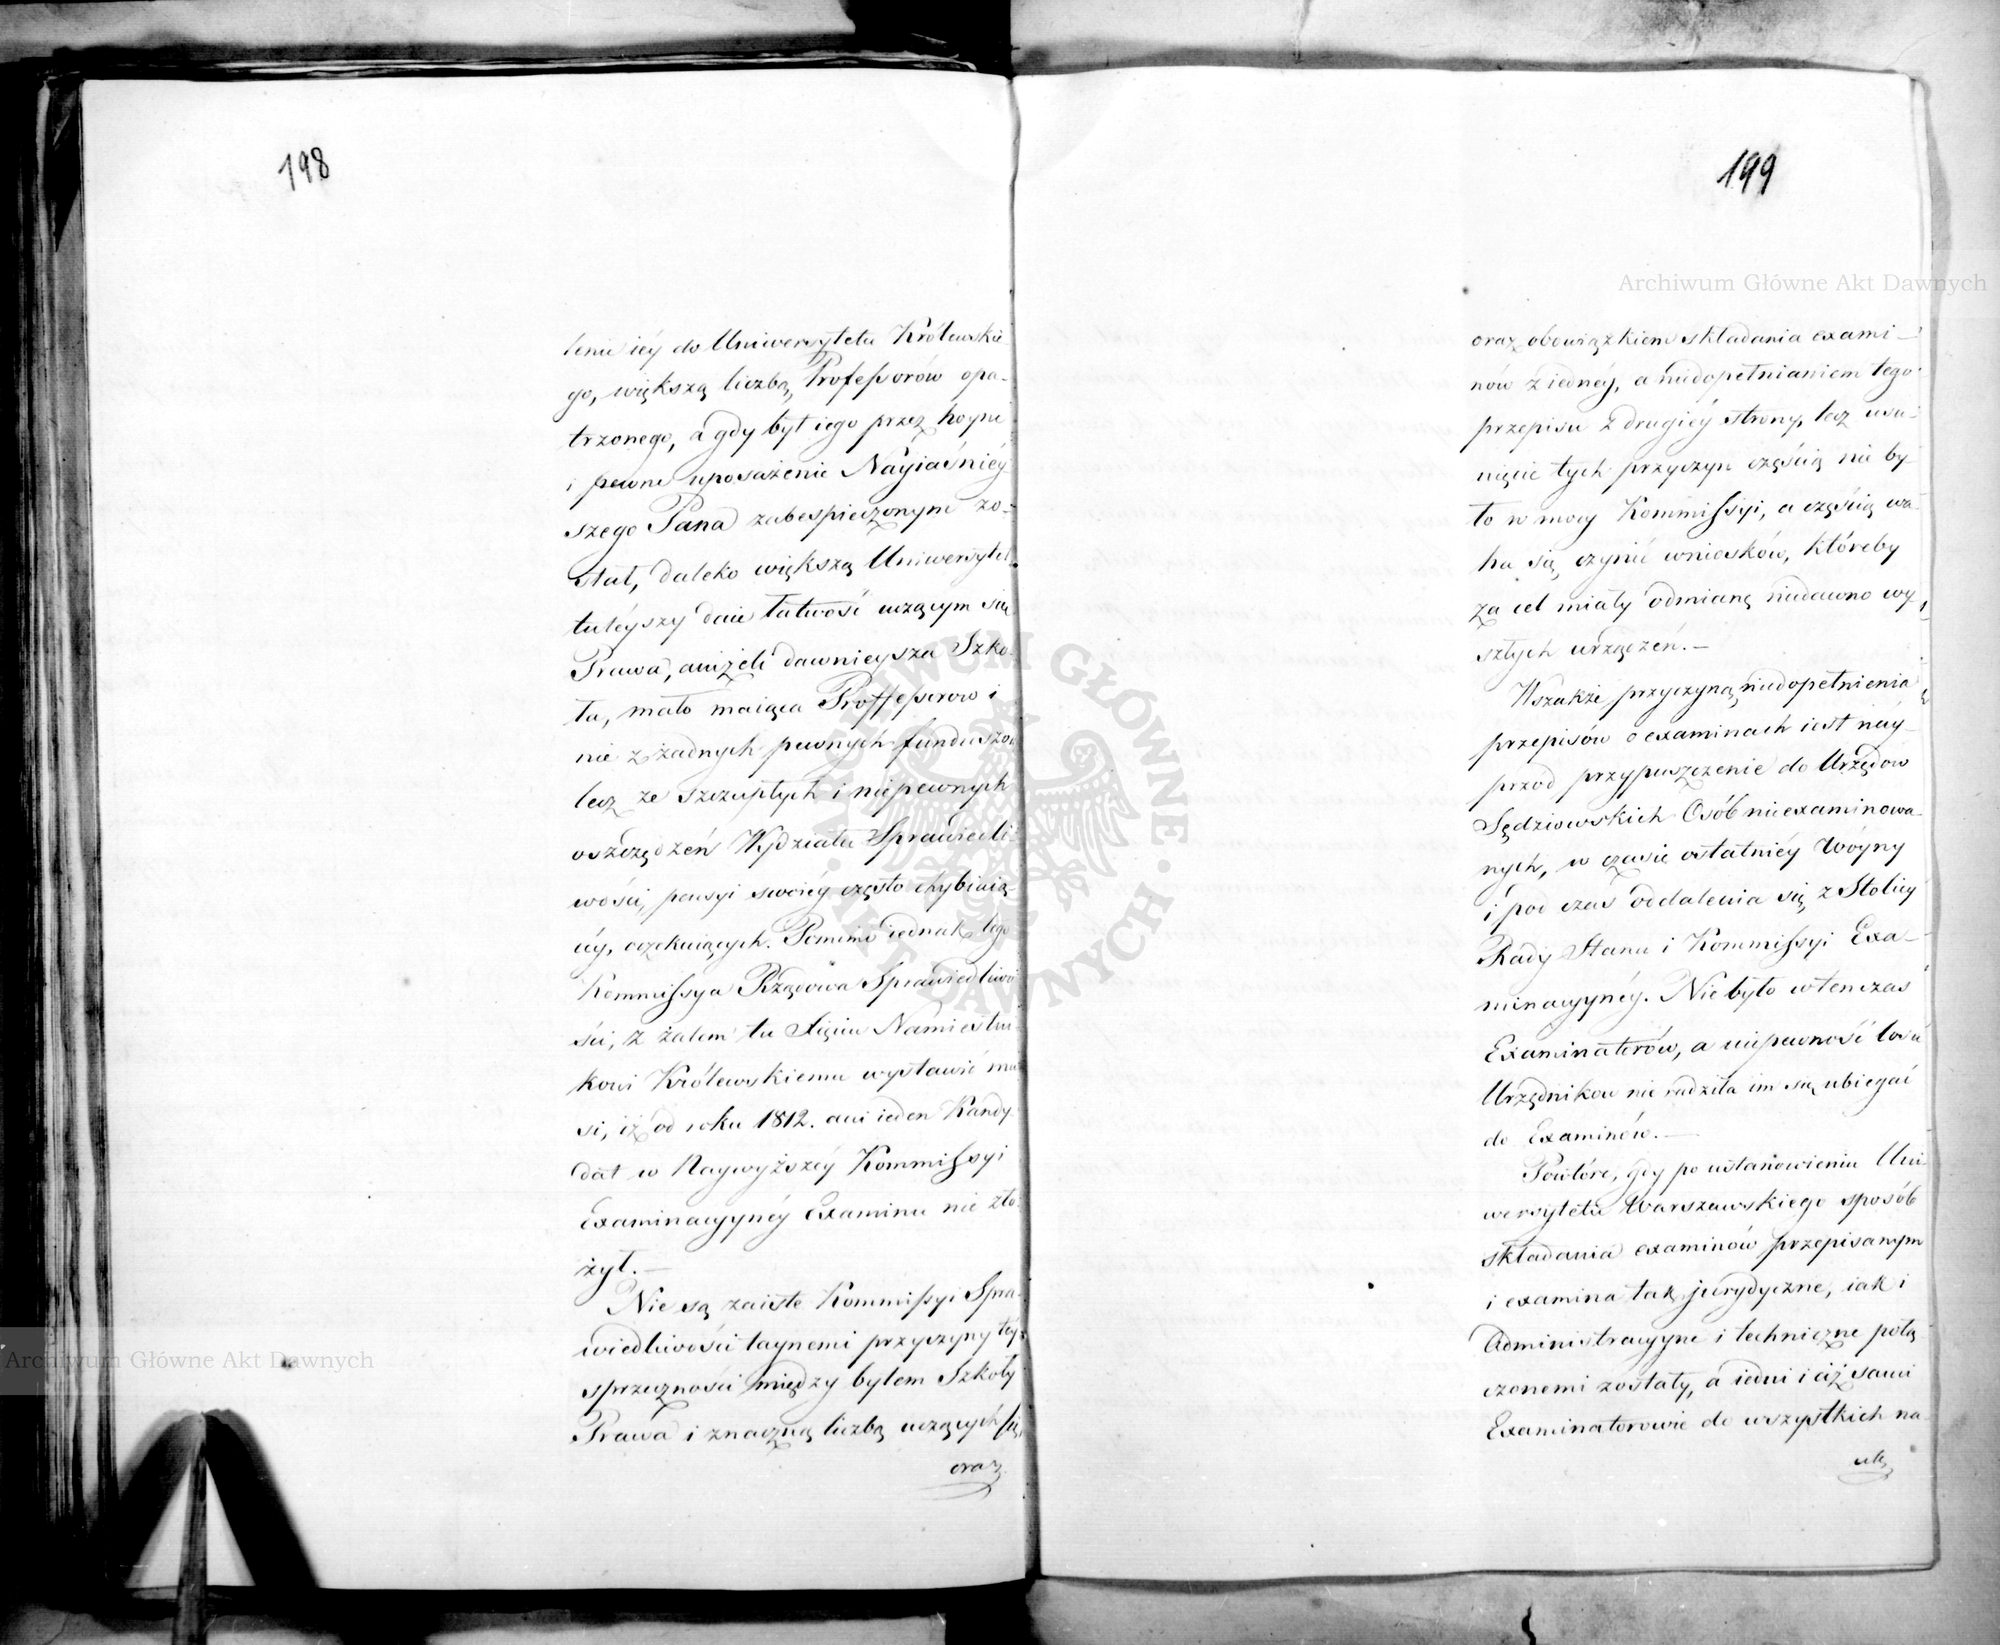 198
lenie iéy do Uniwersytetu Królewskie
go, większą liczbą Professorów opa-
trzonego, a gdy byt iego przez hoyne
i pewne uposażenie Nayiaśniéy-
szego Pana zabespieczonym zo-
stał, daleko większą Uniwersytet
tuteyszy daie łatwość uczącym się
Prawa, aniżeli dawnieysza Szko-
ła, mało maiąca Proffessorow i
nie z żadnych pewnych funduszow
lecz ze szczupłych i niepewnych
oszczędzeń Wydziału Sprawiedli-
wości, pensyi swoiéy często chybiaią-
céy, oczekuiących. Pomimo iednak tego
Kommissya Rządowa Sprawiedliwo
ści, z żalem tu Xięciu Namiestni
kowi Królewskiemu wystawić mu
si, iż od roku 1812. ani ieden Kandy-
dat w Naywyższéy Kommissyi
Examinacyynéy Examinu nie zło-
żył.—
Nie są zaiste Kommissyi Spra-
wiedliwości taynemi przyczyny téy
sprzeczności między bytem Szkoły
Prawa i znaczną liczbą uczących się,
oraz
199
oraz obowiązkiem składania exami-
nów z iednéy, a niedopełnianiem tego
przepisu z drugiéy strony, lecz usu-
nięcie tych przyczyn częścią nie by-
ło w mocy Kommissyi, a częścią wa-
ha się czynić wniosków, któreby
za cel miały odmianę niedawno wy
szłych urządzeń.—
Wszakże przyczyną niedopełnienia
przepisów o examinach iest nay-
przod przypuszczenie do Urzędów
Sędziowskich Osób nieexaminowa-
nych, w czasie ostatniéy Woyny
i pod czas oddalenia się z Stolicy
Rady Stanu i Kommissyi Exa-
minacyynéy. Nie było wtenczas
Examinatorów, a niepewność losu
Urzędnikow nie radziła im się ubiegać
do Examinów.—
Powtóre, gdy po ustanowieniu Uni-
wersytetu Warszawskiego sposób
składania examinów przepisanym
i examina tak jurydyczne, iak i
Administracyyne i techniczne połą
czonemi zostały, a iedni i ciż sami
Examinatorowie do wszystkich na-
uk
Archiwum Główne Akt Dawnych
Archiwum Główne Akt Dawnych
ARCHIWUM GŁÓWNE · AKT DAWNYCH ·